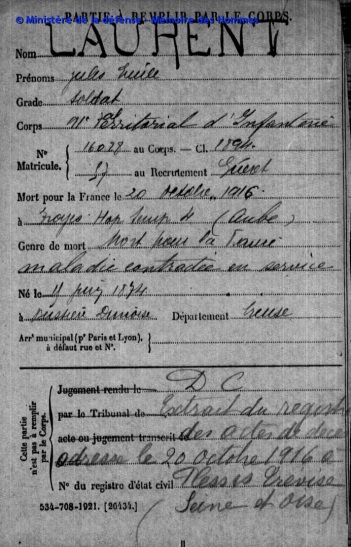 PARTIE À REMPLIR PAR LE CORPS.
© Ministère de la défense - Mémoire des hommes
Nom LAURENT
Prénoms Jules
Grade soldat
Corps Territorial d'Infanterie
N° Matricule. 16028 au Corps. — Cl. 1894
57 au Recrutement Guéret
Mort pour la France le 20 octobre 1916
à Troyes Hop. Temp. 4 (Aube)
Genre de mort Mort pour la
maladie contractée en service
Né le 11 juin 1874
à Dunoise Département Creuse
Arr<sup>t</sup> municipal (p<sup>r</sup> Paris et Lyon), à défaut rue et N°.
Cette partie n'est pas à remplir par le Corps.
Jugement rendu le D C
par le Tribunal de Extrait du registre
acte ou jugement transcrit des actes de décès
adressé le 20 octobre 1916 à
N° du registre d'état civil Plessis
Seine et Oise)
534-708-1921. [26434.]